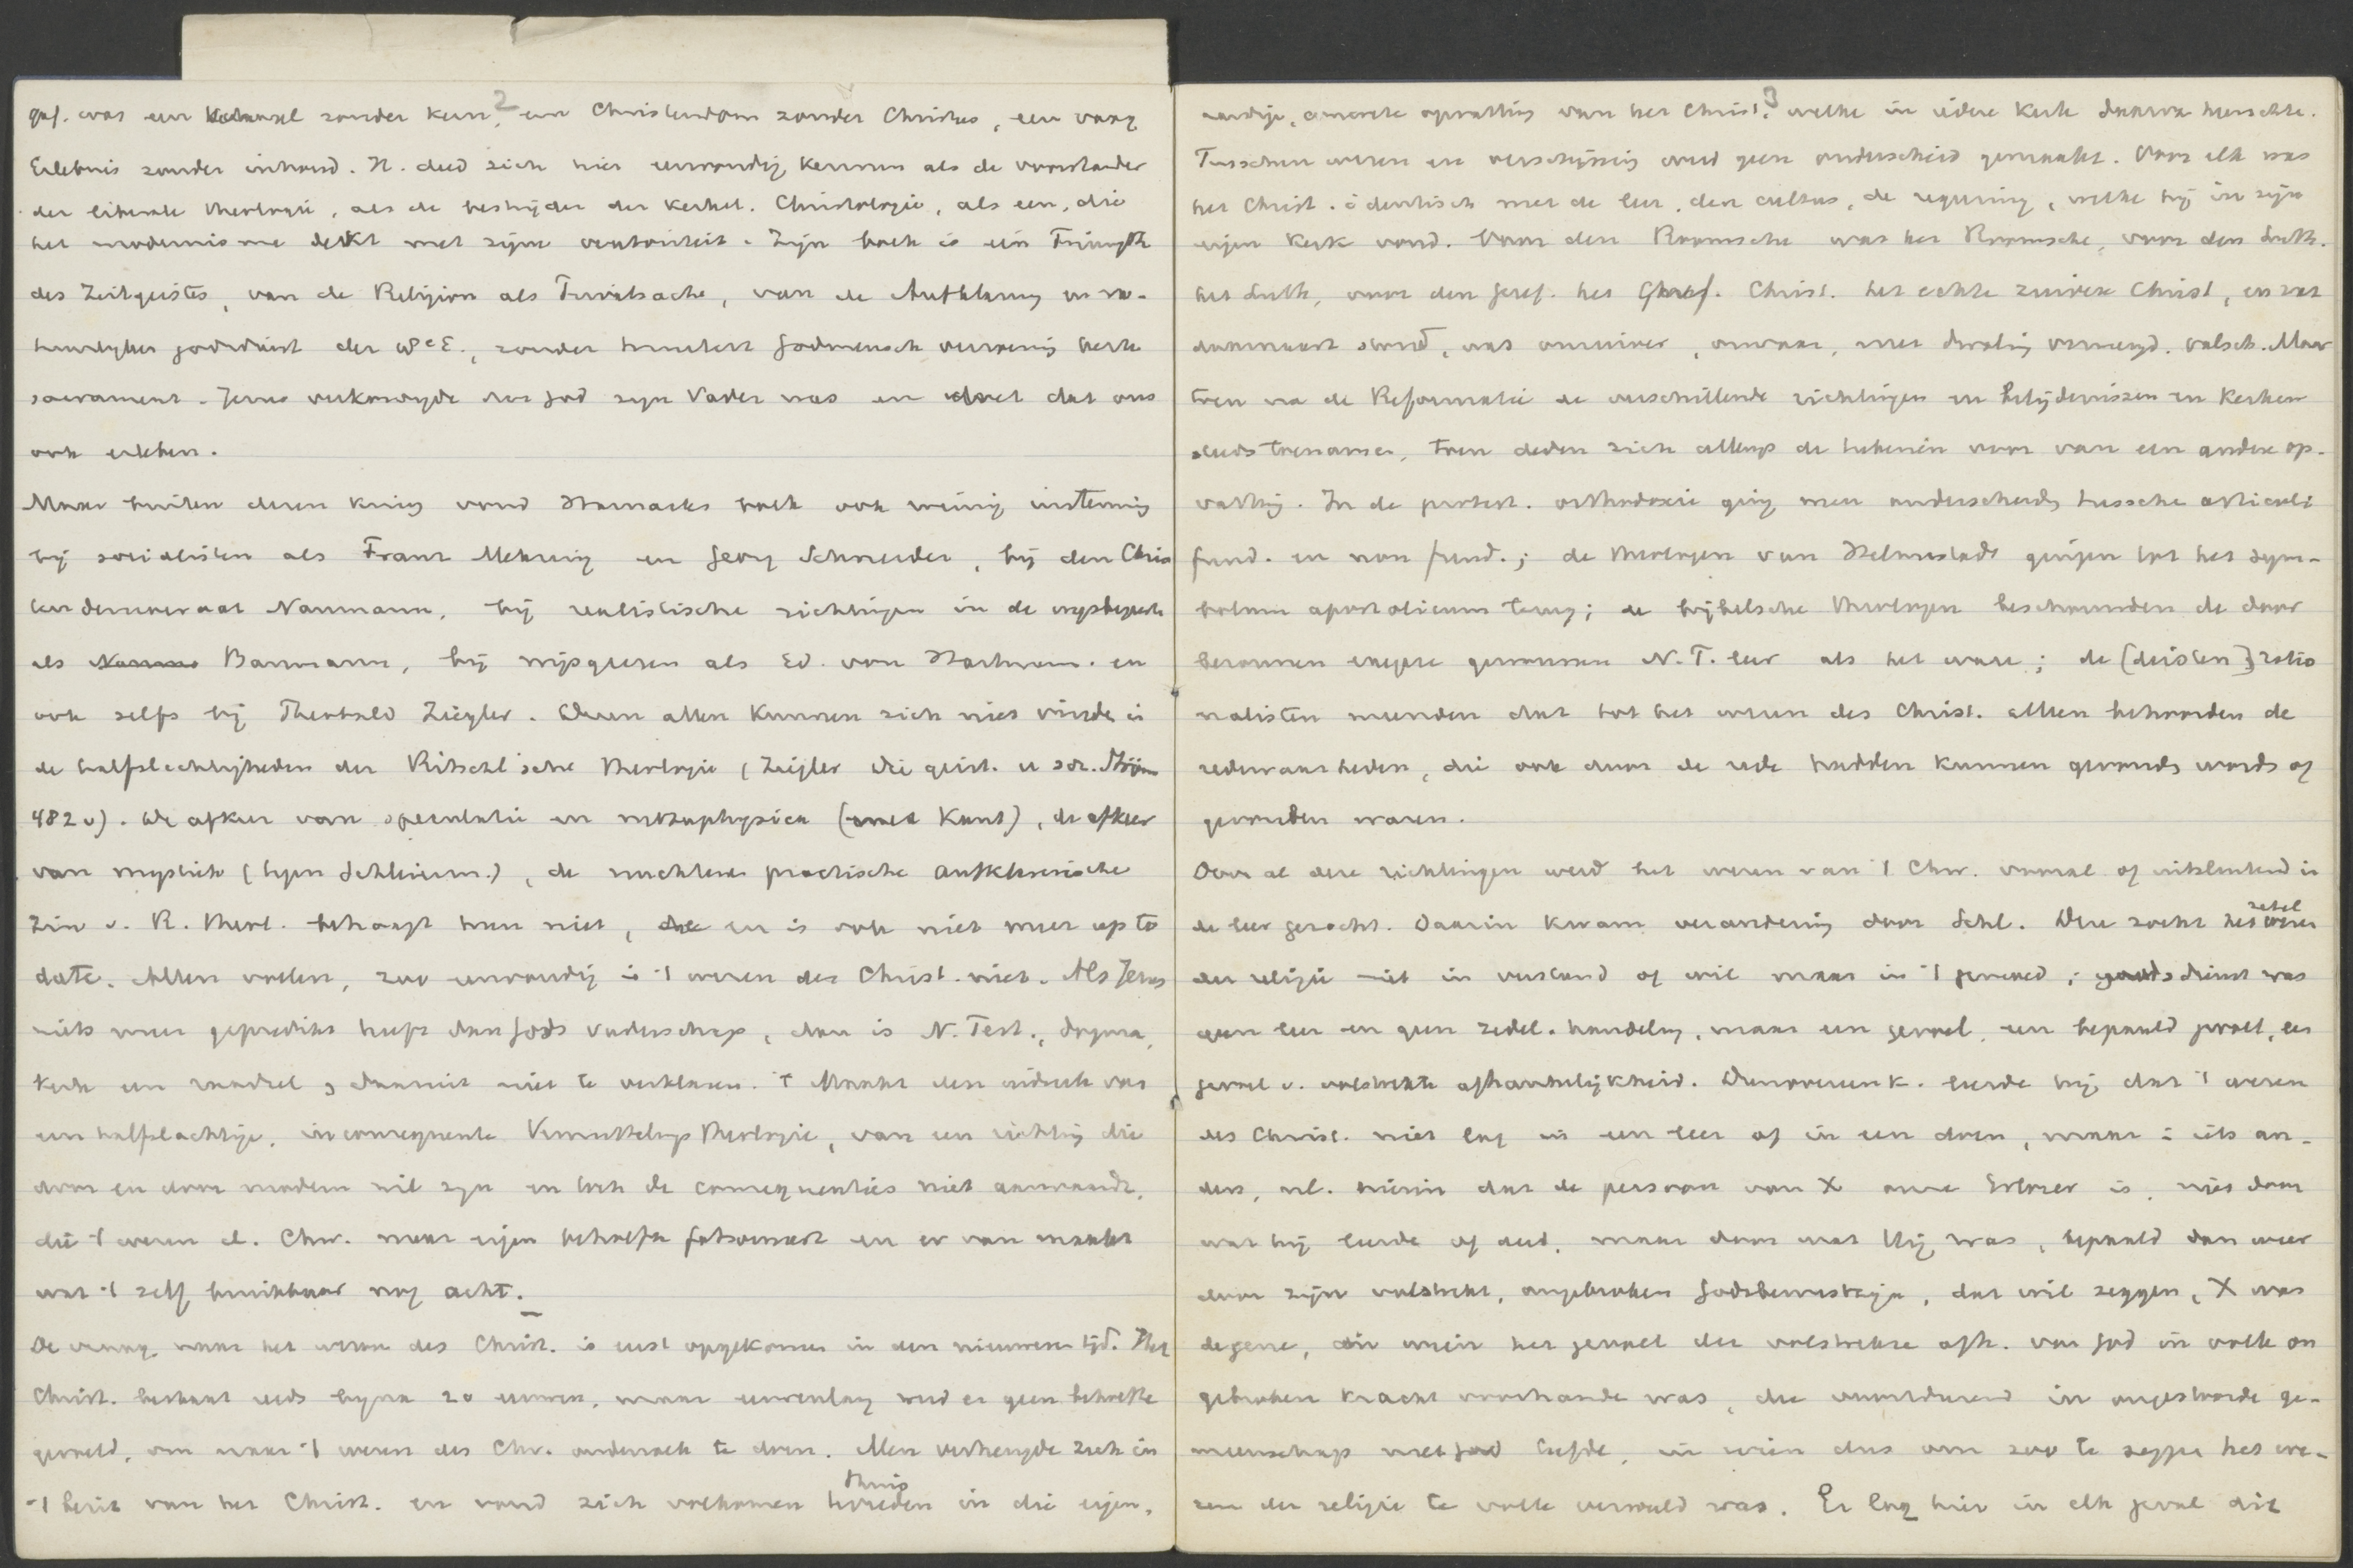 2
gaf. was een zonder kern, een Christendom zonder Christus, een vaag
Erlebnis zonder inhoud. H. deed zich hier eenvoudig kennen als de voorstander
der liberale theologie, als de bestrijder der kerkel. Christologie, als een, die
het modernisme dekt met zijne autoriteit. Zijn boek is ein Triumph
des Zeitgeistes, van de Religion als Privatsache, van de Aufklärung en
der 18e E., zonder Godmensch verzoening kerk
sacrament. Jezus verkondigde dat God zijn Vader was en doet dat ons
ook erleben.
Maar buiten dezen kring vond Harnacks boek ook weinig instemming
bij socialisten als Franz Mehring en Georg Schneider, bij den Chris
ten democraat Naumann, bij realistische richtingen in de wijsbegeerte
als Baumann, bij wijsgeeren als Ed. von Hartmann. en
ook zelfs bij Theobald Ziegler. Dezen allen kunnen zich niet vinden in
de halfslachtigheden der Ritschlsche theologie (Ziegler Die geist. u soz. Ström
482v). De afkeer van speculatie en metaphysica (met Kant), de afkeer
van mystiek (tegen Schleierm.), de nuchtere practische aufklärerische
zin v. R. theol. behaagt hun niet, en is ook niet meer up to
date. Allen voelen, zoo eenvoudig is 't wezen des Christ. niet. Als Jezus
niets meer gepredikt heeft dan Gods Vaderschap, dan is N. Test., dogma,
kerk een raadsel, daaruit niet te verklaren. 't Maakt den indruk van
een halfslachtige, inconsequente Vermittelungstheologie, van een richting die
door en door modern wil zijn en toch de consequenties niet aanvaardt,
die 't wezen d. Chr. naar eigen behoefte fatsoeneert en er van maakt
wat 't zelf bruikbaar nog acht.
De vraag naar het wezen des Christ. is eerst opgekomen in den nieuweren tijd. Het
Christ. bestaat reeds bijna 20 eeuwen, maar eeuwenlang werd er geen behoefte
gevoeld, om naar 't wezen des Chr. onderzoek te doen. Men verheugde zich in
thuis
't bezit van het Christ. en vond zich volkomen tevreden in die eigen-
3
aardige, concrete opvatting van het Christ., welke in iedere kerk daarvan heerschte.
Tusschen wezen en verschijning werd geen onderscheid gemaakt. Voor elk was
het Christ. identisch met de leer, den cultus, de regeering, welke hij in zijn
eigen kerk vond. Voor den Roomsche was het Roomsche, voor den Luth.
het Luth., voor den Geref. het Geref. Christ. het echte zuivere Christ, en wat
daarnaast stond, was onzuiver, onwaar, met dwaling vermengd. valsch. Maar
toen na de Reformatie de verschillende richtingen en belijdenissen en kerken
steeds toenamen, toen deden zich allengs de teekenen voor van een andere op-
vatting. In de protest. orthodoxie ging men onderscheiden tussche articuli
fund. en non fund.; de theologen van Helmstadt gingen tot het sym-
bolum apostolicum terug; de bijbelsche theologen beschouwden de door
hen uit de H. N. T. leer als het ware; de [deisten] ratio
nalisten meenden dat tot het wezen des Christ. alleen behoorden de
redewaarheden, die ook door de rede hadden kunnen gevonden worden of
gevonden waren.
Door al deze richtingen werd het wezen van 't Chr. vooral of uitsluitend in
zetel
de leer gezocht. Daarin kwam verandering door Schl. Deze zocht het wezen
der religie niet in verstand of wil maar in 't gevoel; godsdienst was
geen leer en geen zedel. handeling, maar een gevoel, een bepaald gevoel, een
gevoel v. volstrekte afhankelijkheid. Dienovereenk. leerde hij, dat 't wezen
des Christ. niet lag in een leer of in een doen, maar in iets an-
ders, nl. hierin dat de persoon van X onze Erlöser is, niet door
wat hij leerde of deed, maar door wat Hij was, bepaald dan weer
door zijn volstrekt, ongebroken Godsbewustzijn, dat wil zeggen, X was
degene, in wien het gevoel der volstrekte afh. van God in volle on
gebroken kracht voorhanden was, die voortdurend in ongestoorde ge-
meenschap met God leefde, in wien dus om zoo te zeggen het we-
zen der religie te volle vervuld was. Er lag hier in elk geval dit